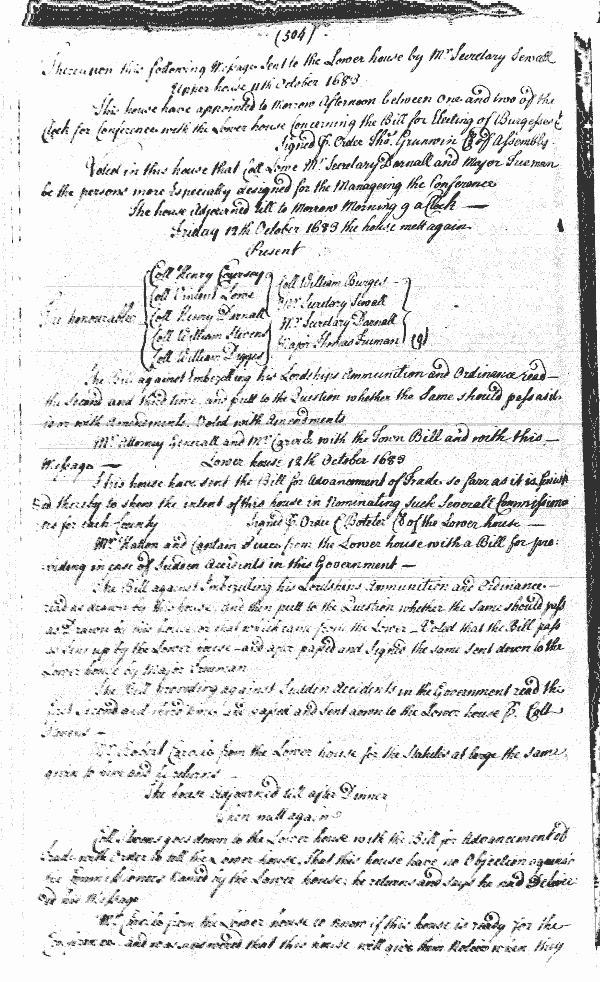 (504)
Thereupon this following Message Sent to the Lower house by Mr Secretary Sewall
Upper house 11th October 1683
This house have appointed to Morrow Afternoon between One and two of the
Clock for Conference with the Lower house Concerning the Bill for Electing of Burgesses &
Signed P. Order Tho: Grunwin Cl of Assembly
Voted in this house that Coll Lowe Mr Secretary Darnall and Major Trueman
be the persons more Especially designed for the Manageing the Conference
The house Adjourned till to Morrow Morning 9 a Clock —
Friday 12th October 1683 the house mett again
Present
The honourable
Coll Henry Coursey
Coll Vincent Lowe
Coll Henry Darnall
Coll William Stevens
Coll William Digges
Coll William Burges
Mr Secretary Sewall
Mr Secretary Darnall
Major Thomas Trueman
The Bill against Embezelling his Lordships Ammunition and Ordinance read
the Second and third time, and putt to the Question whether the Same should pass as it
is or with Amendments. Voted with Amendments
Mr Attorney Generall and Mr Carvile with the Town Bill and with this —
Message — Lower house 12th October 1683
This house have sent the Bill for Advancement of Trade so farr as it is
ed thereby to shew the intent of this house in Nominating Such Severall Commissione
ers for each County Signed P. Order C Boteler Cl of the Lower house —
Mr Hatton and Captain from the Lower house with a Bill for pro:
viding in case of Sudden Accidents in this Government —
The Bill against Imbezeling his Lordships Ammunition and Ordinance
read as drawn by this house, and then putt to the Question whether the same should pass
as Drawn by this house or that which came from the Lower — Voted that the Bill pass
as Sent up by the Lower house — and after passed and Signed the same sent down to the
Lower house by Major Trueman
The Bill providing against Sudden Accidents in the Government read the
first Second and third time and passed and Sent down to the Lower house P. Coll
Stevens —
Mr Robert Carvile from the Lower house for the Statutes at large the same
given to him and he returns —
The house Adjourned till after Dinner
Then mett again
Coll Stevens goes down to the Lower house with the Bill for Advancement of
Trade with Order to tell the Lower house, that this house have no Objection against
the Commissioners Named by the Lower house; he returns and says he had Deliver
ed his Message
Mr Carvile from the Lower house to know if this house is ready for the
Conference and was answered that this house will give them Notice when they